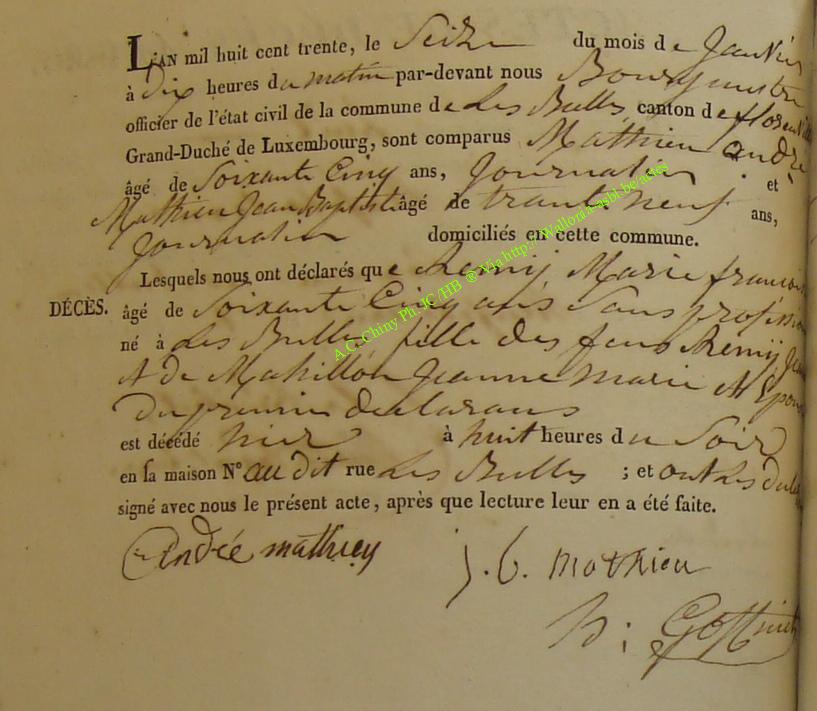 L'AN mil huit cent trente, le Seize du mois de Janvier
à dix heures du matin par-devant nous Bourgmestre
officier de l'état civil de la commune de Les Bulles canton de florenville
Grand-Duché de Luxembourg, sont comparus Mathieu andré
âgé de Soixante Cinq ans, Journalier et
Mathieu Jean Baptiste âgé de trante neuf ans,
Journalier domiciliés en cette commune.
Lesquels nous ont déclarés que Remij Marie francoise
DÉCÈS. âgé de Soixante Cinq ans Sans profession
né à Les Bulles fille des feus Remij Jean
et de Mahillon Jeanne marie et Epouse
du premier declarans
est décédé hier à huit heures du Soir
en sa maison N° au dit rue Les Bulles ; et ont Les
signé avec nous le présent acte, après que lecture leur en a été faite.
andré mathieu
J. b. mathieu
A.C. Chiny Ph JC /HB @ Via http://Wallonia-asbl.be/actes